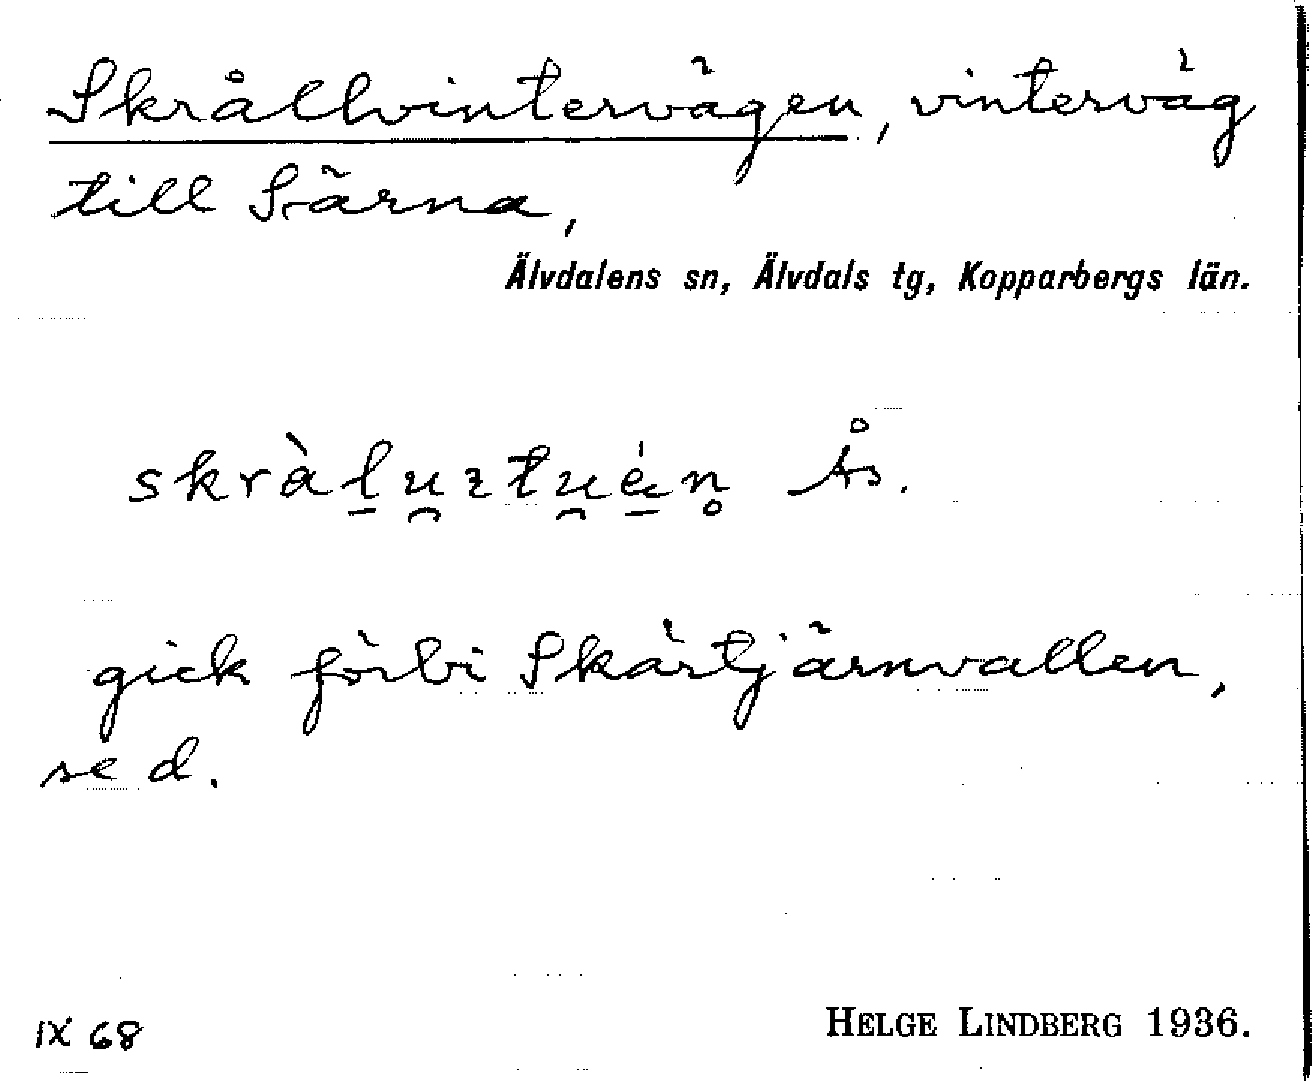 Skrållvintervägen, vinterväg
till Särna,
Älvdalens sn, Älvdals tg, Kopparbergs län.
Ås.
gick förbi Skärtjärnvallen,
se d.
IX 68
HELGE LINDBERG 1936.